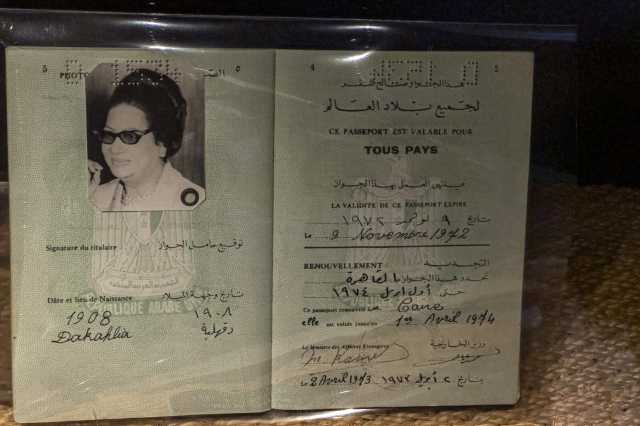 5 PHOTO ٥
Signature du titulaire توقيع حامل الجواز
Date et lieu de Naissance تاريخ وجهة الميلاد
1908 ١٩٠٨
Dakahlia دقهلية
4
لجميع بلاد العالم
CE PASSEPORT EST VALABLE POUR
TOUS PAYS
ينتهى العمل بهذا الجواز
LA VALIDITE DE CE PASSEPORT EXPIRE
بتاريخ ٩ نوفمبر ١٩٧٢
Le 9 Novembre 1972
RENOUVELLEMENT التجديد
تجدد هذا الجواز بالقاهرة
حتى أول ابريل ١٩٧٤
Ce passeport renouvelé au Caire
elle est valable jusqu'au 1er Avril 1974
Le Ministre des Affaires Etrangères وزير الخارجية
Le 2 Avril 1973 بتاريخ ٢ أبريل ١٩٧٣